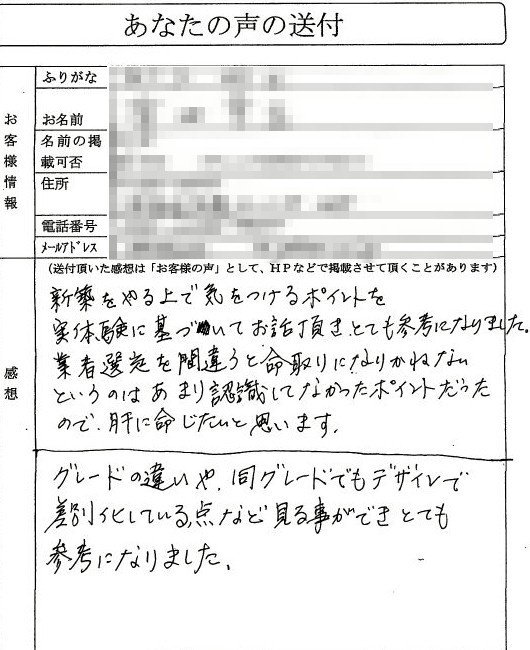 あなたの声の送付
お客様情報
ふりがな
お名前
名前の掲
載可否
住所
電話番号
メールアドレス
(送付頂いた感想は「お客様の声」として、HPなどで掲載させて頂くことがあります)
感想
新築をやる上で気をつけるポイントを
実体験に基づいてお話頂きとても参考になりました。
業者選定を間違うと命取りになりかねない
というのはあまり認識してなかったポイントだった
ので、肝に命じたいと思います。
グレードの違いや、同グレードでもデザインで
差別化している点など見る事ができとても
参考になりました。